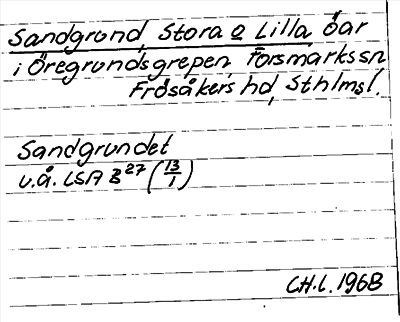 Sandgrund, Stora o Lilla öar
i Öregrundsgrepen, Forsmarks sn
Frösåkers hd, Sthlms l.
Sandgrundet
u.å. LSA B27 (13/1)
CH.l. 1968